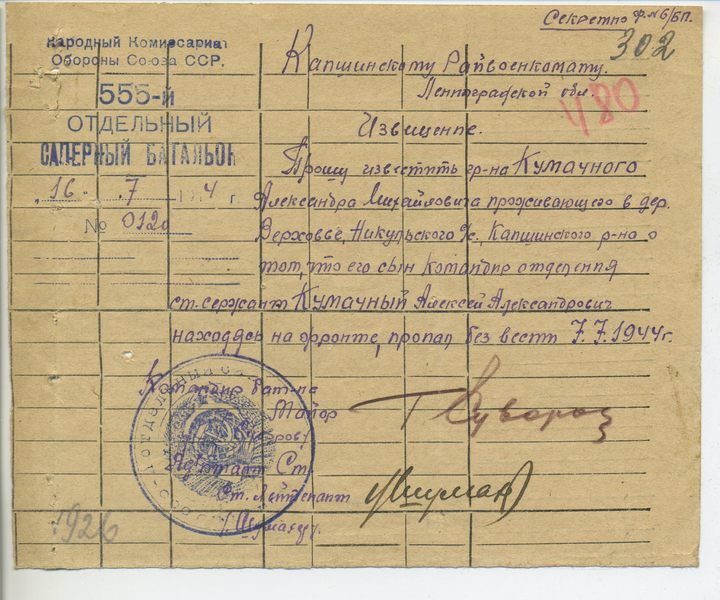 Секретно ф.№6/БП.
302
480
Народный Комиссариат
Обороны Союза ССР.
555-й
ОТДЕЛЬНЫЙ
САПЕРНЫЙ БАТАЛЬОН
16. 7 194 4 г.
№ 0120
Капшинскому Райвоенкомату.
Ленинградской обл.
Извищение.
Прошу известить гр-на Кумачного
Александра Михайловича проживающего в дер.
Верховье, Никульского с/с, Капшинского р-на о
том, что его сын командир отделения
ст. сержант Кумачный Алексей Александрович
находясь на фронте, пропал без вести 7.7.1944г.
Командир бат-на
Майор
Суворов
Адъютант Ст.
Ст. Лейтенант
1926